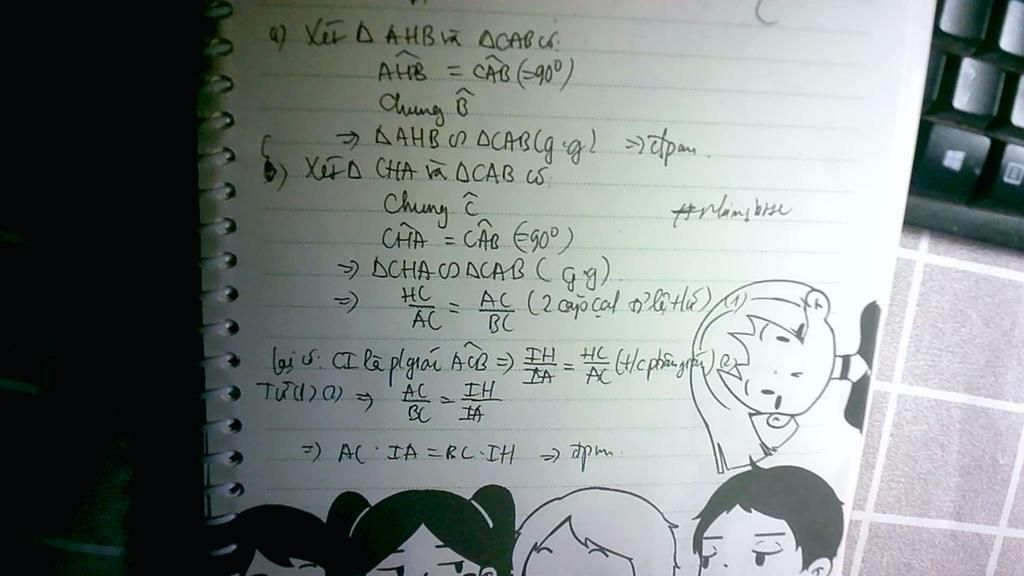 a) Xét Δ AHB và ΔCAB có:
AHB̂ = CÂB (=90⁰)
Chung B̂
=> ΔAHB ∽ ΔCAB (g.g) => đpcm.
b) Xét Δ CHA và ΔCAB có:
Chung Ĉ
CHÂ = CÂB (=90⁰)
=> ΔCHA ∽ ΔCAB (g.g)
=> HC/AC = AC/BC (2 cặp cạnh tỉ lệ t/ư) (1)
Lại có: CI là p/giác AĈB => IH/IA = HC/AC (t/c phân giác) (2)
Từ (1)(2) => AC/BC = IH/IA
=> AC . IA = BC . IH => đpcm.